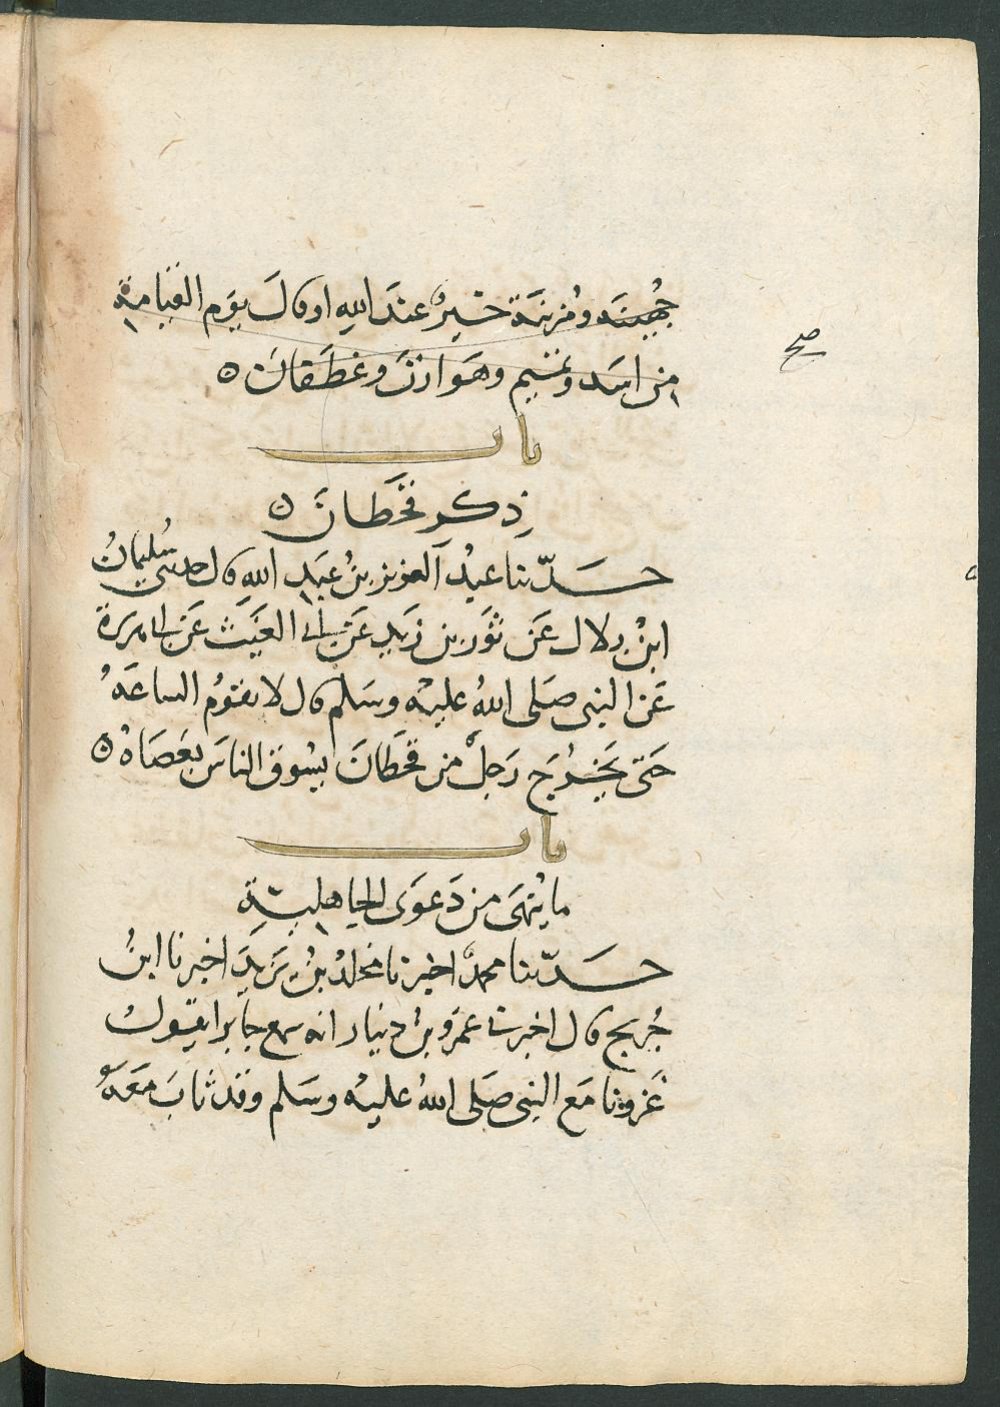 جُهَينَه ومُزينَة خَيرٌ عندَ اللهِ او قالَ يوَم القيامةِ
من اسَد وتميم وهَوازنَ وغطَفانَ ٥
صح
باب
ذكر قحَطانَ ٥
حَدّثنا عبدُ العزيز بنُ عبَدِ اللهِ قال حدثني سُليمانُ
ابنُ بلال عَن ثوَر بن زَيدٍ عَن ابي الغَيَث عَن ابي هريرة
عَن النبي صَلى اللهُ عليه وسَلم قال لا تقومُ الساعَهُ
حَتى يَخرُجَ رَجلٌ من قحَطانَ يسُوق الناسَ بعَصَاهُ ٥
باب
ما يُنهَى من دَعوَى الجاهليّةِ
حَدّثنا محمدٌ اخبرنا مخلدُ بنُ يَزيدَ اخبرنا ابنُ
جُريج قال اخبرني عَمرُو بنُ دينار انه سمع جابرا يقولُ
غَزونا مَع النبي صَلى اللهُ عليه وسَلم وقد ثابَ معَهُ